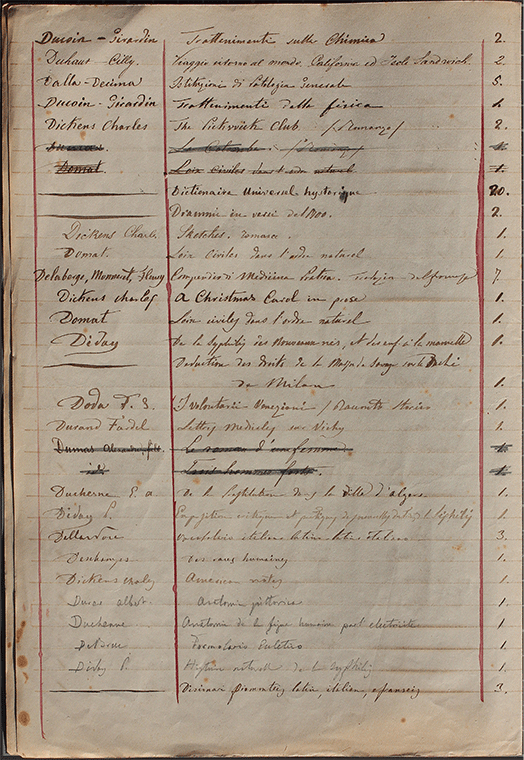 Ducoin - Girardin Trattenimenti sulla Chimica 2.
Duhaut - Cilly. Viaggio intorno al mondo. California ed Isole Sandwich. 2
Dalla-Decima Istituzioni di Patologia Generale 5.
Ducoin - Girardin Trattenimenti della fisica
Dickens Charles The Pickwick Club - /Romanzo/ 2.
Domat. Loix Civiles dans l'ordre naturel 1.
Dictionaire Universel hystorique 20.
Drammi in versi del 1800. 2.
Dickens Charl. Sketches. romance. 1.
Domat. Loix Civiles dans l'ordre naturel 1.
Delaberge, Monneret, Fleury Compendio di Medicina Pratica. 7
Dickens Charles A Christmas Carol in prose 1.
Domat Loix civiles dans l'ordre naturel 1.
Diday De la Syphilis des Nouveaux nés, et des enf. à la mamelle
Deduction des Droits de la Maison de Savoye sur le Duché
de Milan 1.
Doda I Volontarii Veneziani / Racconto Storico 1.
Durand Fardel Lettres Medicales sur Vichy 1.
Dumas Alexandre, fils. Le roman d'une femme
id.
Duchesne E. A. De la Prostitution dans la Ville d'Alger 1.
Diday P. 1.
Dellavore italiano latino latino italiano 3.
Deschamps Des races humaines 1.
Dickens Charles American notes 1.
Duras albert. Anatomia pittorica 1.
Duchenne Anatomie de la figure humaine part electricité 1.
Formolario Eclettico 1.
Diday P. Histoire naturelle de la syphilis 1.
latin, italian, 3.